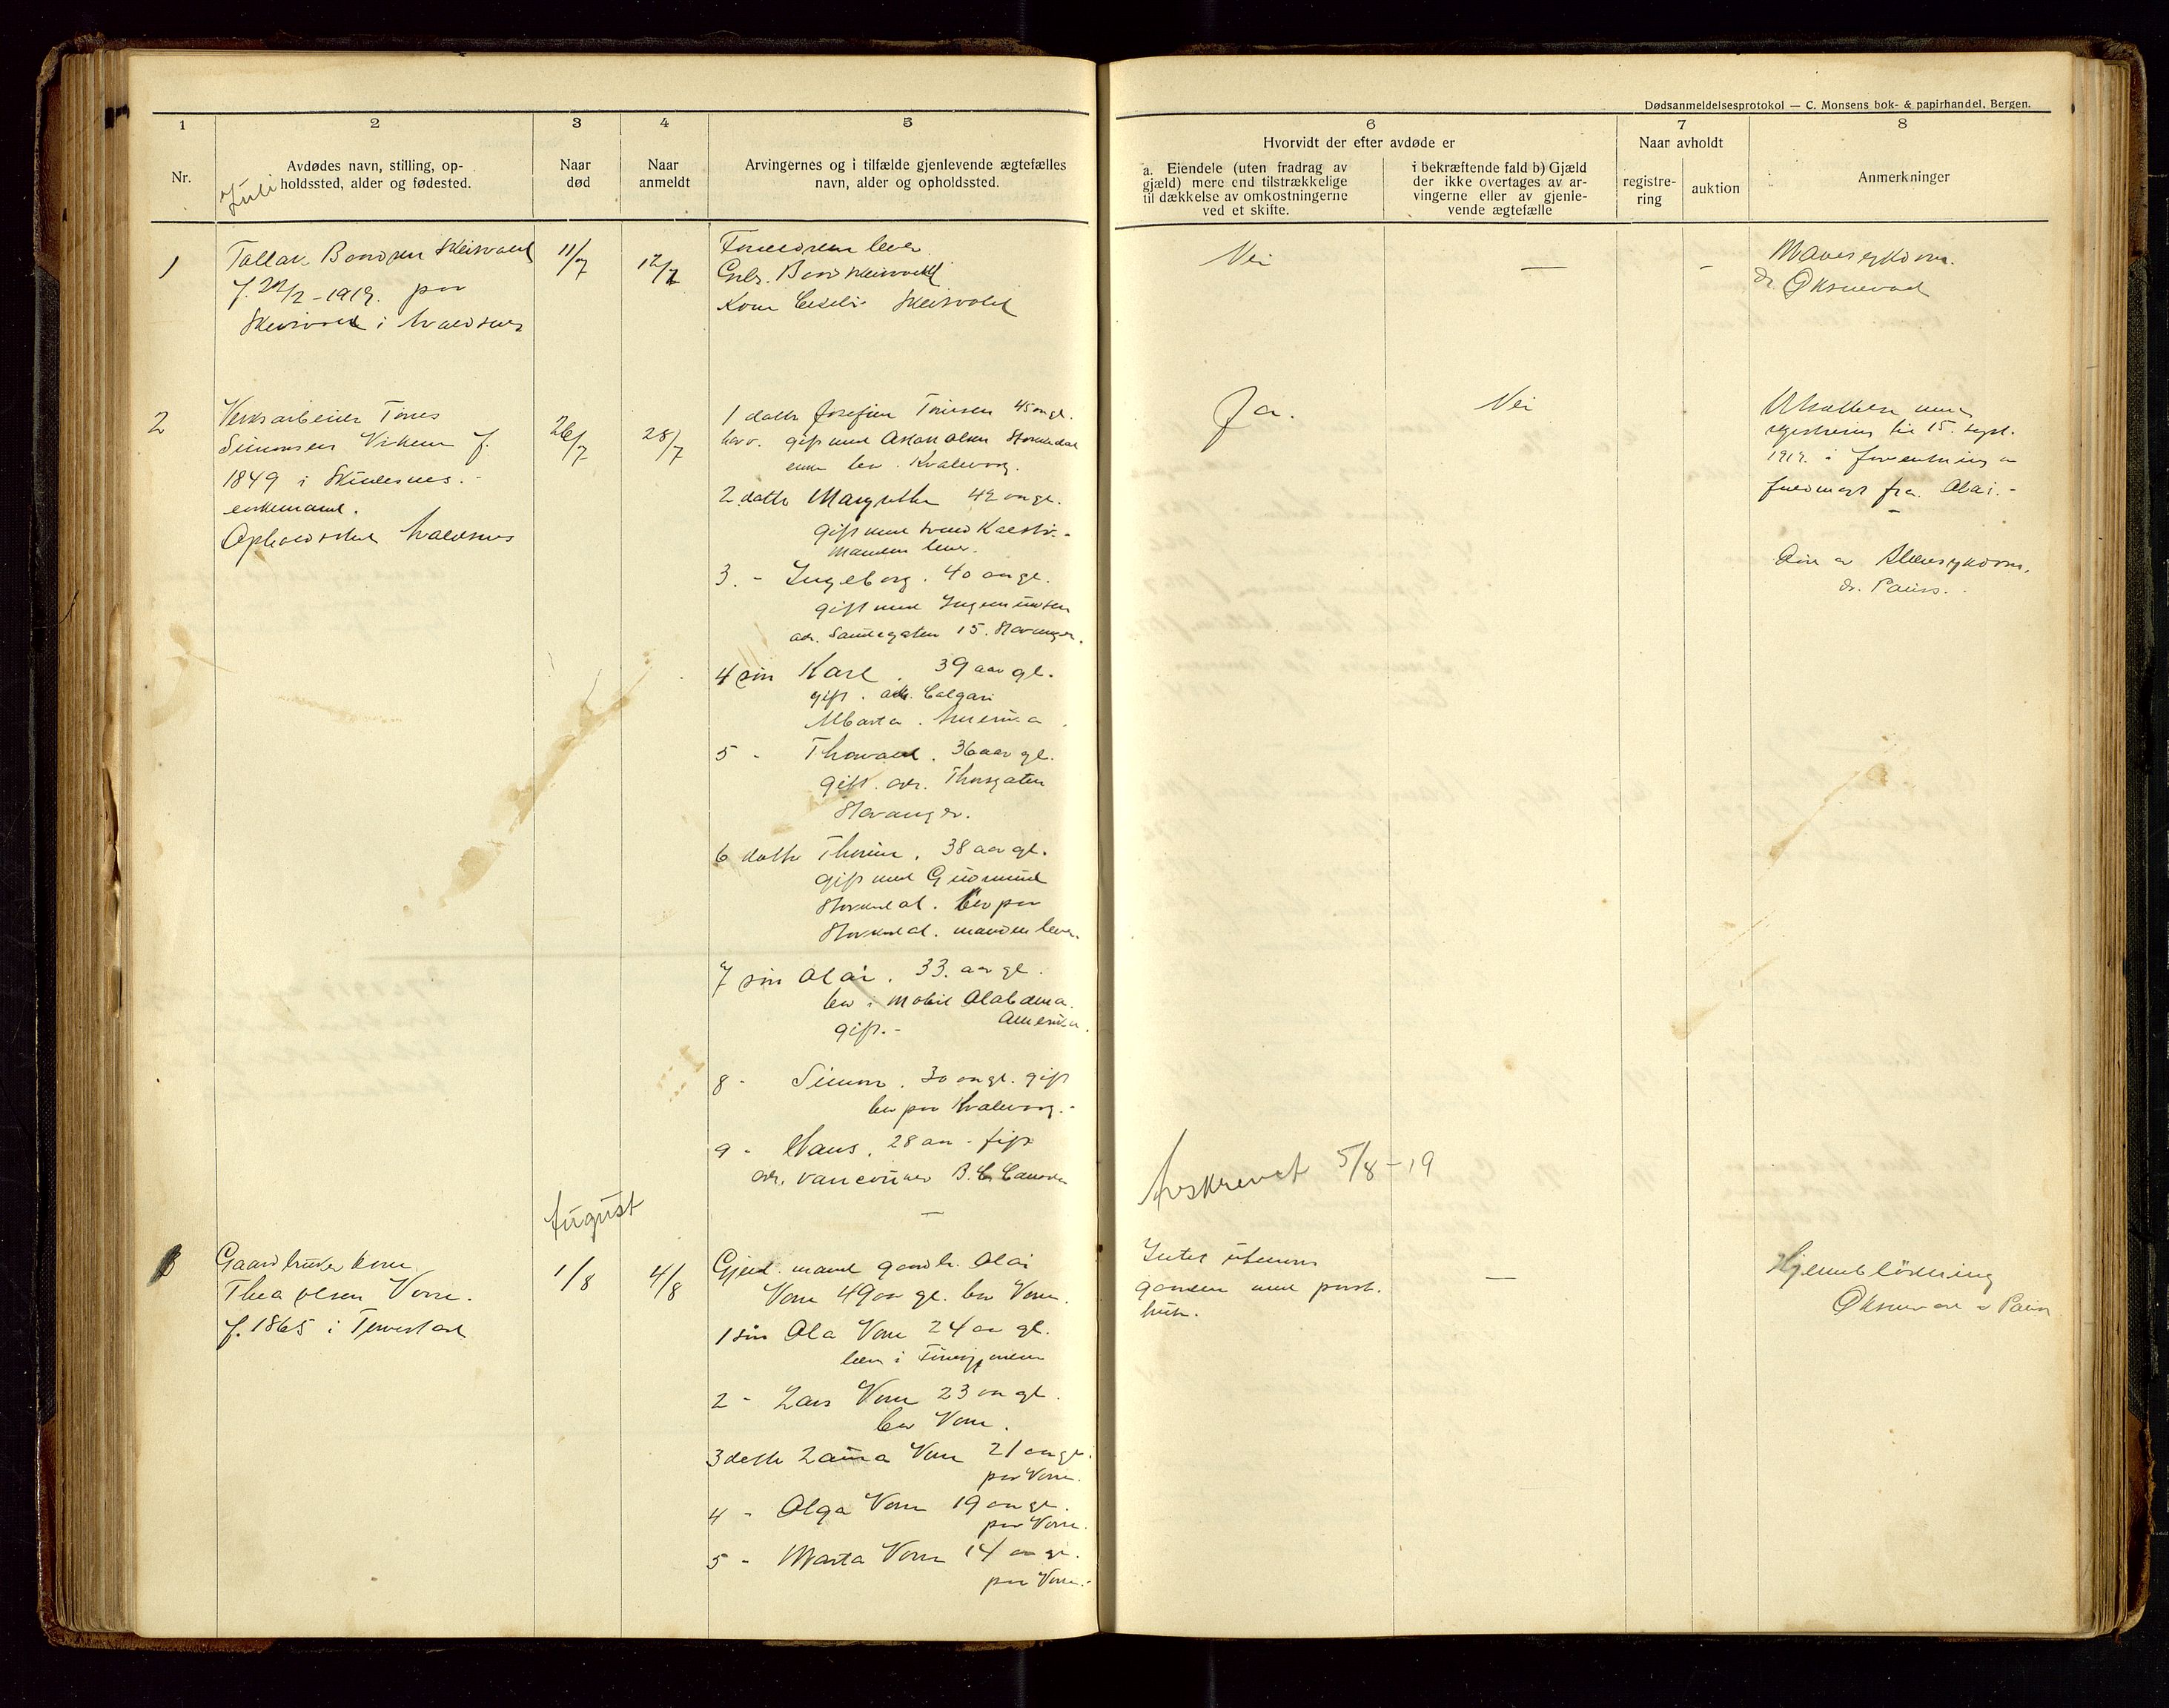 Dødsanmeldelsesprotokol — C. Monsens bok- & papirhandel, Bergen.
1 2 3 4 5 6 7 8
Nr.
Avdødes navn, stilling, op-
holdssted, alder og fødested.
Naar
død
Naar
anmeldt
Arvingernes og i tilfælde gjenlevende ægtefælles
navn, alder og opholdssted.
Hvorvidt der efter avdøde er
a. Eiendele (uten fradrag av
gjæld) mere end tilstrækkelige
til dækkelse av omkostningerne
ved et skifte.
i bekræftende fald b) Gjæld
der ikke overtages av ar-
vingerne eller av gjenle-
vende ægtefælle
Naar avholdt
registre-
ring
auktion
Anmerkninger
Juli
1
Tallak
Skeisvold
1919. paa
i Avaldsnes
11/7
12/7
Forældrene lever
Skeisvold
Kone Skeisvold
Nei
—
-
Mavesykdom.
dr Øksnevad
2
Verksarbeider Tønes
Simonsen f.
1849 i Skudesnes.-
enkemand.
Opholdssted Avaldsnes
26/7
28/7
1 datter Josefine 45 aar gl.
gift med Aslak Olsen Storkedal
enke bor Kvalevaag.
2 datter Margrethe 42 aar gl.
gift med
manden lever.
3. - Ingeborg. 40 aar gl.
gift med Ingemundsen
adr. Sandegaten 15. Stavanger.
4 søn Karl. 39 aar gl.
gift. adr. Calgari
Alberta. Amerika
5 - Thorvald. 36 aar gl.
gift. adr. Thorsgaten
Stavanger.
6 datter 38 aar gl.
gift med Gudmund
Storkedal. bor paa
Storkedal. manden lever.
7 søn Olai. 33. aar gl.
bor i Mobil Alabama.
gift.- Amerika.
8 - Simon. 30 aar gl. gift
bor paa Kvalevaag.-
9 - Hans. 28 aar - gift
adr. Vancouver B. C. Canada
—
Ja.
Nei
registrering til 15. sept.
1919. i forventning av
fuldmagt fra Olai.-
Død av
dr. Paus.
Avskrevet 5/8-19
August
3
Gaardbruker kone
Thea Olsen Vorre.
f. 1865 i Torvestad
1/8
4/8
Gjenl. mand gaardbr. Olai
Vorre 49 aar gl. bor Vorre.
1 søn Ola Vorre 24 aar gl.
2 - Lars Vorre 23 aar gl.
bor Vorre.
3 datter Laura Vorre 21 aar gl.
paa Vorre.
4 - Olga Vorre 19 aar gl.
paa Vorre.
5 - Marta Vorre 14 aar gl.
paa Vorre.-
Intet utenom
gaarden med
—
Hjerneblødning
Øksnevad